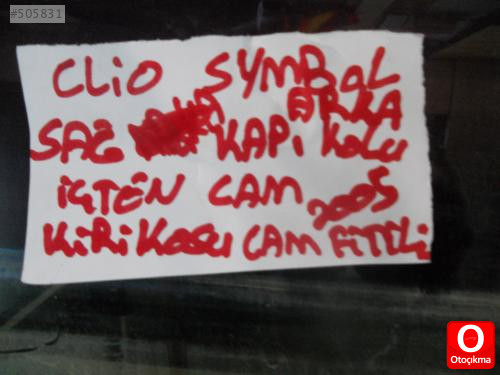 #505831
CLiO SYMBOL
ARKA
SAĞ KAPi KOLU
iÇTEN CAM 2005
KiRiKOSU CAM FiTiLi
O
Otoçıkma